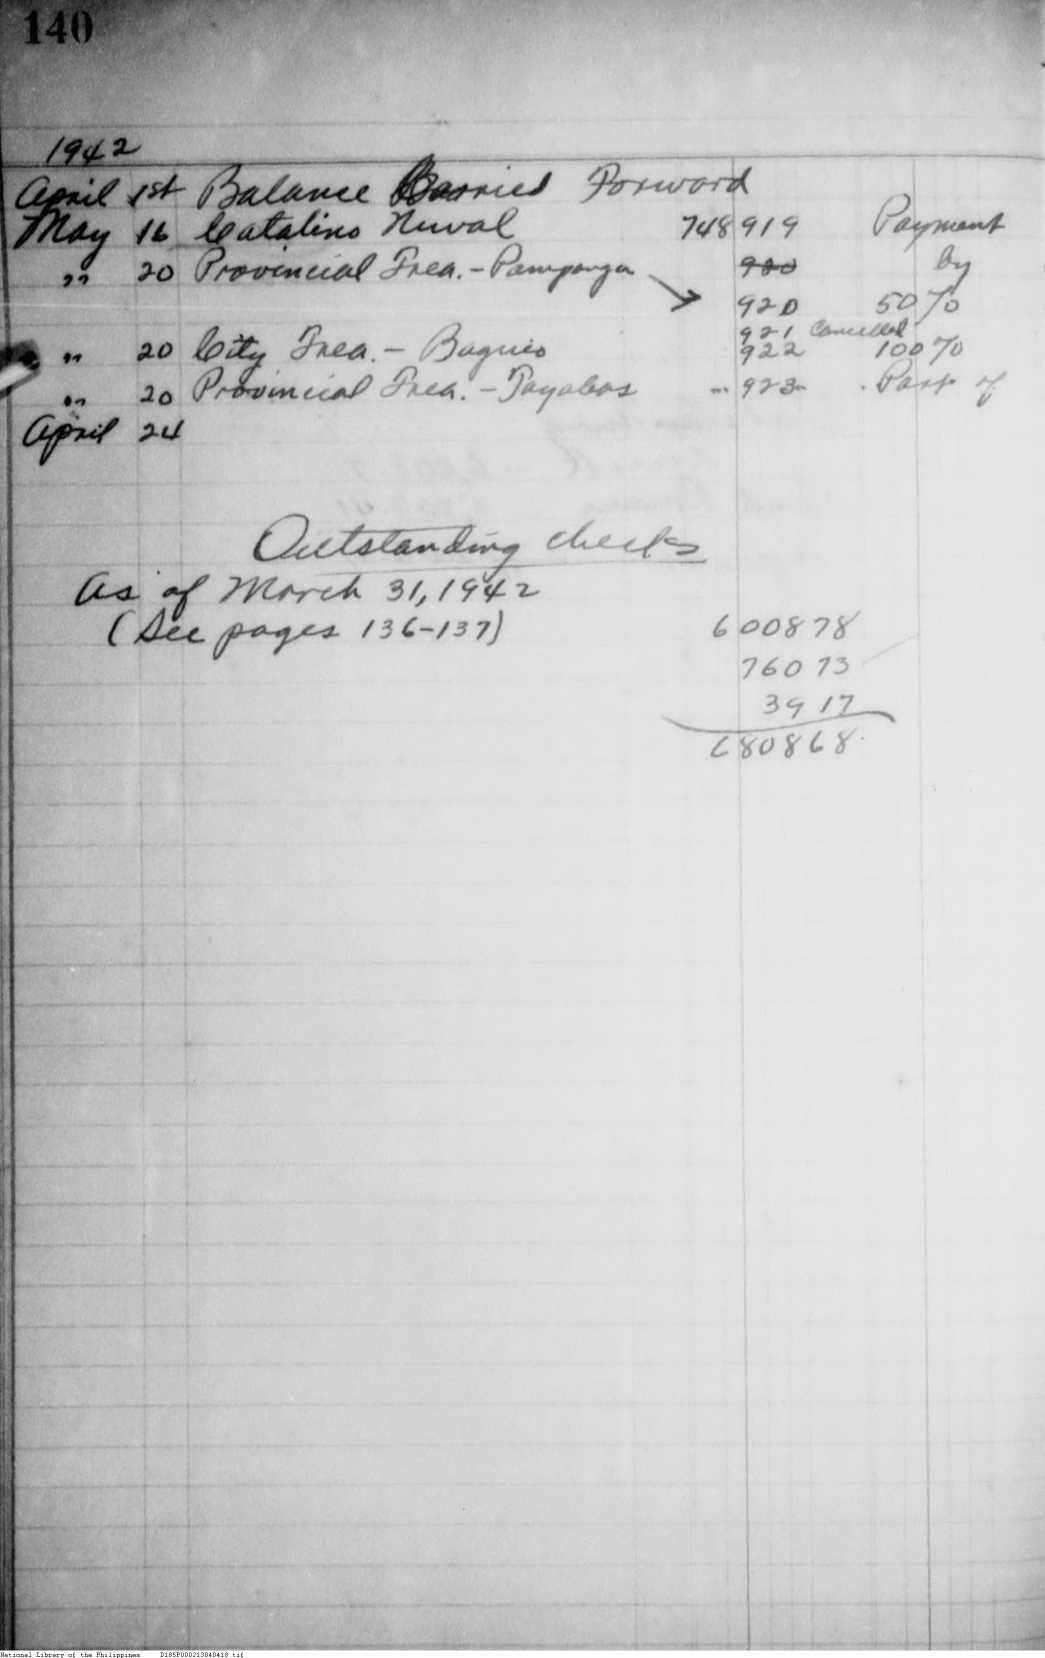 140
1942
April 1st Balance Carried Forward
May 16 Catalino Nuval 748919 Payment
" 20 Provincial Trea. - Pampanga 920 by
920 50%
921 Cancelled
" 20 City Trea. - Baguio 922 100%
" 20 Provincial Trea. - Tayabas " 923 Part of
April 24
Outstanding checks
As of March 31, 1942
(See pages 136-137) 600878
76073
3917
680868
National Library of the Philippines D185P000213040418.tif